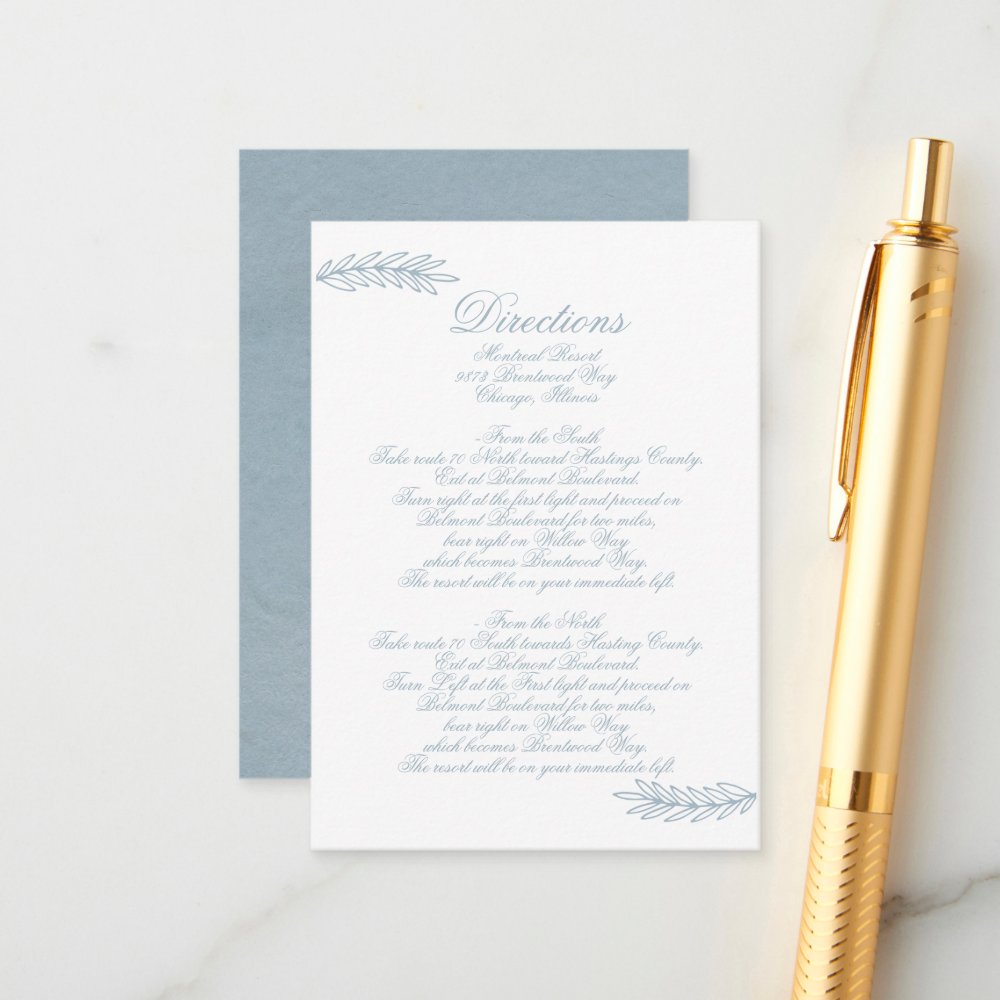 Directions
Montreal Resort
9873 Brentwood Way
Chicago, Illinois
- From the South
Take route 70 North toward Hastings County.
Exit at Belmont Boulevard.
Turn right at the first light and proceed on
Belmont Boulevard for two miles,
bear right on Willow Way
which becomes Brentwood Way.
The resort will be on your immediate left.
- From the North
Take route 70 South towards Hasting County.
Exit at Belmont Boulevard.
Turn Left at the First light and proceed on
Belmont Boulevard for two miles,
bear right on Willow Way
which becomes Brentwood Way.
The resort will be on your immediate left.